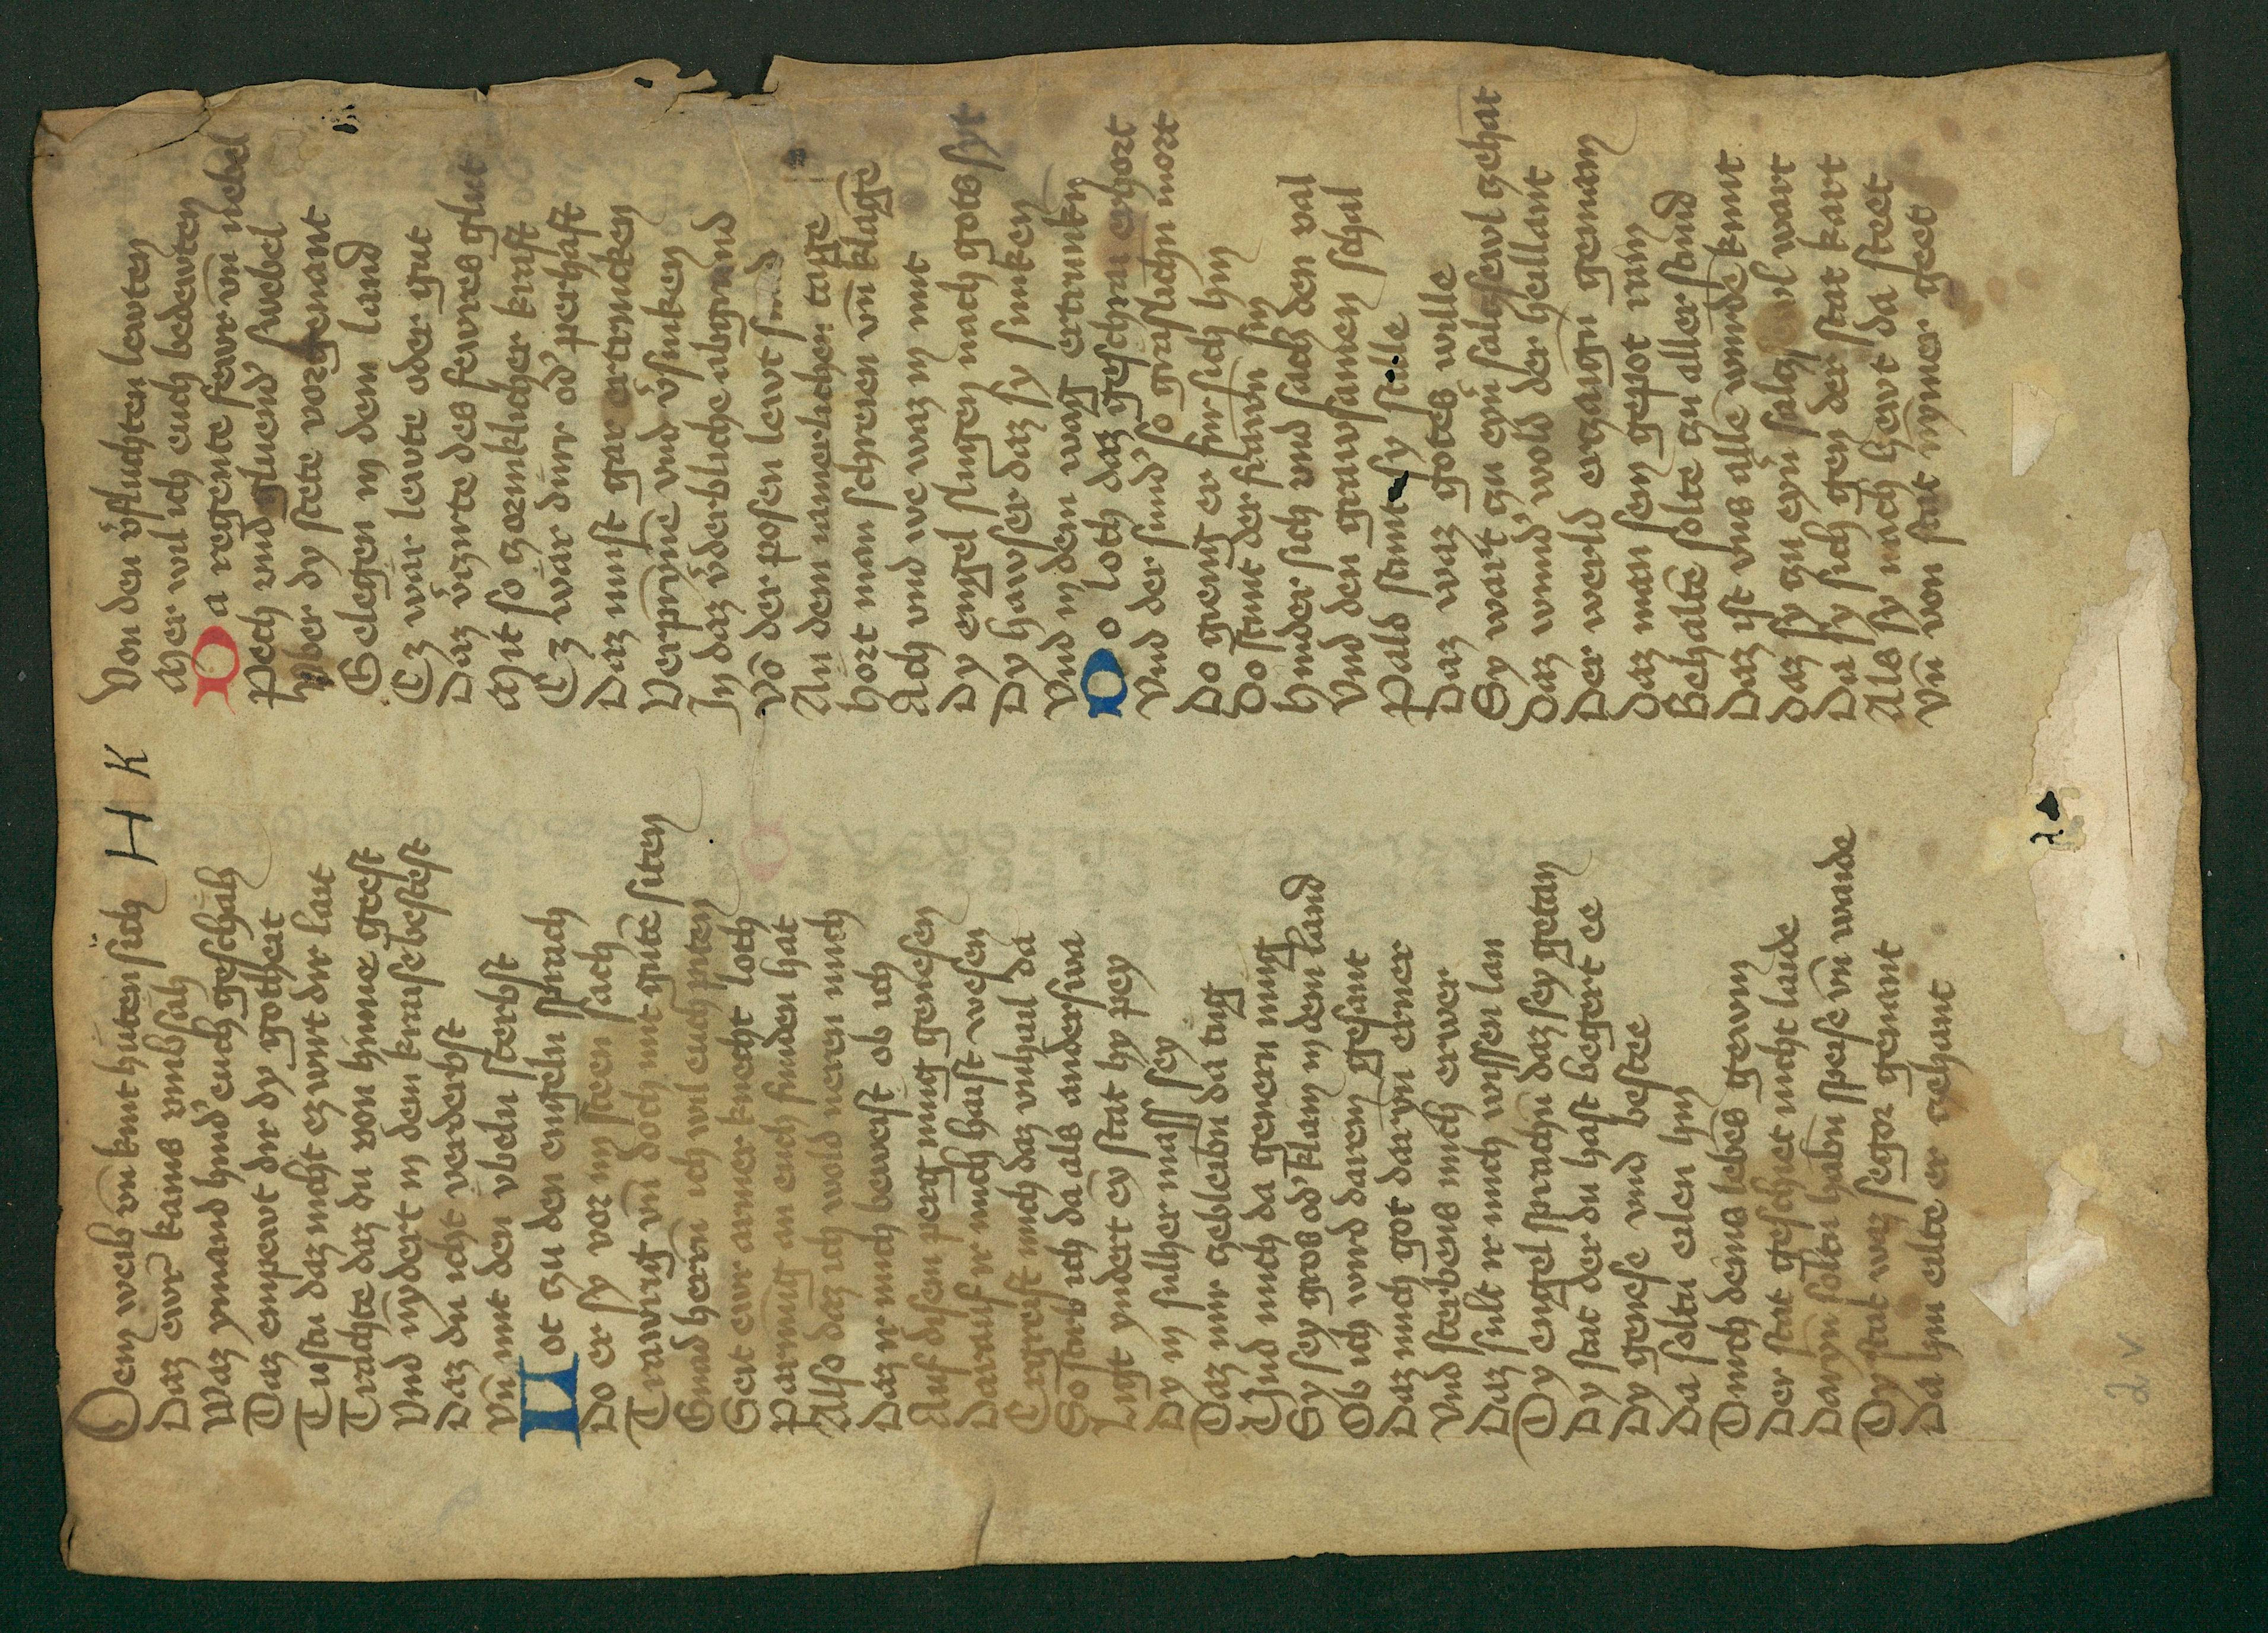 H K
Dein weib vn̄ kint hüten sich
Daz ewr̄ kains vmbsäh
Waz ymand hind' euch geschäh
Daz enpewt dir dy gothait
Tustu daz nicht ez wirt dir lait
Trachte daz du von hinne geest
Vnd nÿdert in dem kraise bestest
Daz du icht verderbst
vn̄ mit den vbeln sterbst
Lot zu den engeln sprach
Do er sy vor im steen sach
Trawrig vn̄ doch mit gutē siten
Gnad herrn̄ ich wil euch piten
Seit ewr armer knecht loth
Parmūg an euch funden hat
Also daz ich wold neren mich
Daz ir mich beweist ob ich
Auf disen perg müg genesen
Darauf ir mich haist wesen
Ergreift mich daz vnhail da
So stirb ich da als anderswa
Ligt yndert ey̅ stat hy pey
Dy in sulher mass sey
Daz mir zebleibn̄ da tüg
Vnd mich da genern müg
Sy sey gros od' klain in dem land
Ob ich wird darein gesant
Daz mich got daryn erner
Vnd sterbens mich erwer
Daz sult ir mich wissen lan
Dy engel sprachn̄ daz sey getan
Dy stat der du hast begert ee
Dy genese vnd bestee
Da soltu eilen hin
Durch deins lebēs gewin
Der stat geschiet nicht laide
Daryn soltu habn̄ speise vn̄ waide
Dy stat waz segor genant
Da hin eilte er zehant
Von den v̄fluchten lewten
Mer wil ich euch bedewten
Da regente fewr vn̄ nebel
Pech vnd gluend' swebel
Vber dy stete vorgenant
Gelegen in dem land
Ez wär lewte oder gut
Daz v̄izirte des fewres glut
Mit so zornklicher kraft
Ez wär dürr od' perhaft
Daz must gar ertrincken
Verprynnē vnd v̄sinken
In daz v̄derbliche abgrund
Vō der posen lewt sund
An dem iamerlicher tage
Hort man schreien vn̄ klage
Ach vnd we waz in mit
Dy engel slugen nach gots syt
Dy hawser daz sy sunken
Vnd in dem wag ertrunkn̄
Do loth daz geschrai erhort
Vnd der sund' so graslichn mort
Do gieng er fur sich hin
Do stunt der frawn̄ sin
Hinder sich vnd sach den val
Vnd den grawsamen schal
Pald stunt sy stille
Daz waz gotes wille
Sy wart zu ey̅n salczsewl zehat
Daz wund' wold der heillant
Der werld erzaign̄ geman
Daz man sein gepot nam
Behaltē solte zu aller stund
Daz ist vns allē wurdē kunt
Daz sy zu ey̅n salczsewl wart
Da sy sich gen der stat kart
Als sy noch hewt da steet
Vn̄ von stat nymer geet
2 v